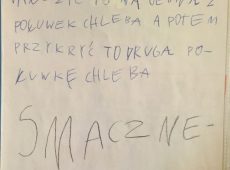 POŁUWEK CHLEBA A POTEM
PRZYKRYĆ TO DRUGA PO-
ŁUWKĘ CHLEBA
SMACZNE-